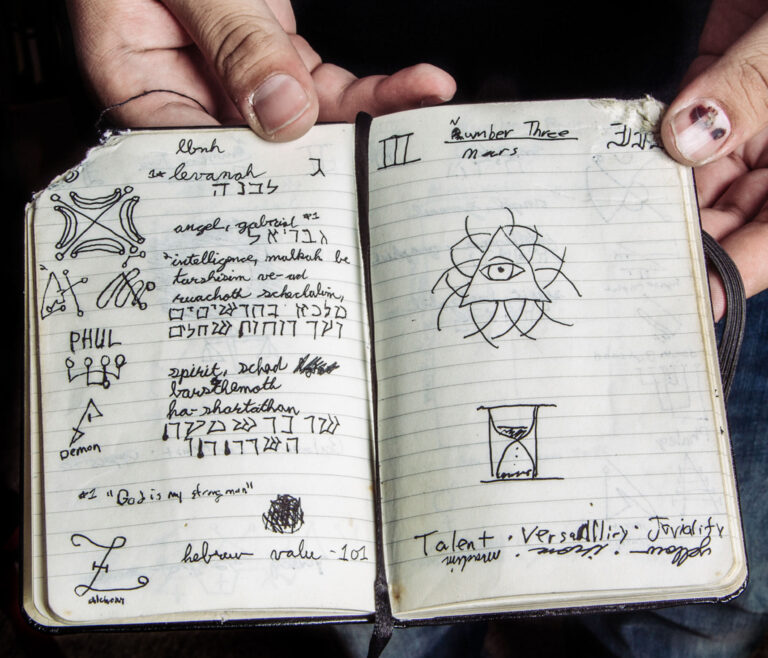 lbnh
1* levanah
לבנה
ג
angel, gabriel #1
גבריאל
intelligence, malkah be
tarshisim ve-ad
ruachoth schechalim,
מלכא בתרשישים
ועד רוחות שחלים
PHUL
spirit, schad
barsthemoth
ha-shartathan
שד
Demon
#1 "God is my strong man"
hebrew value -101
alchemy
III
Number Three
mars
Talent · Versatility · Joviality
yellow